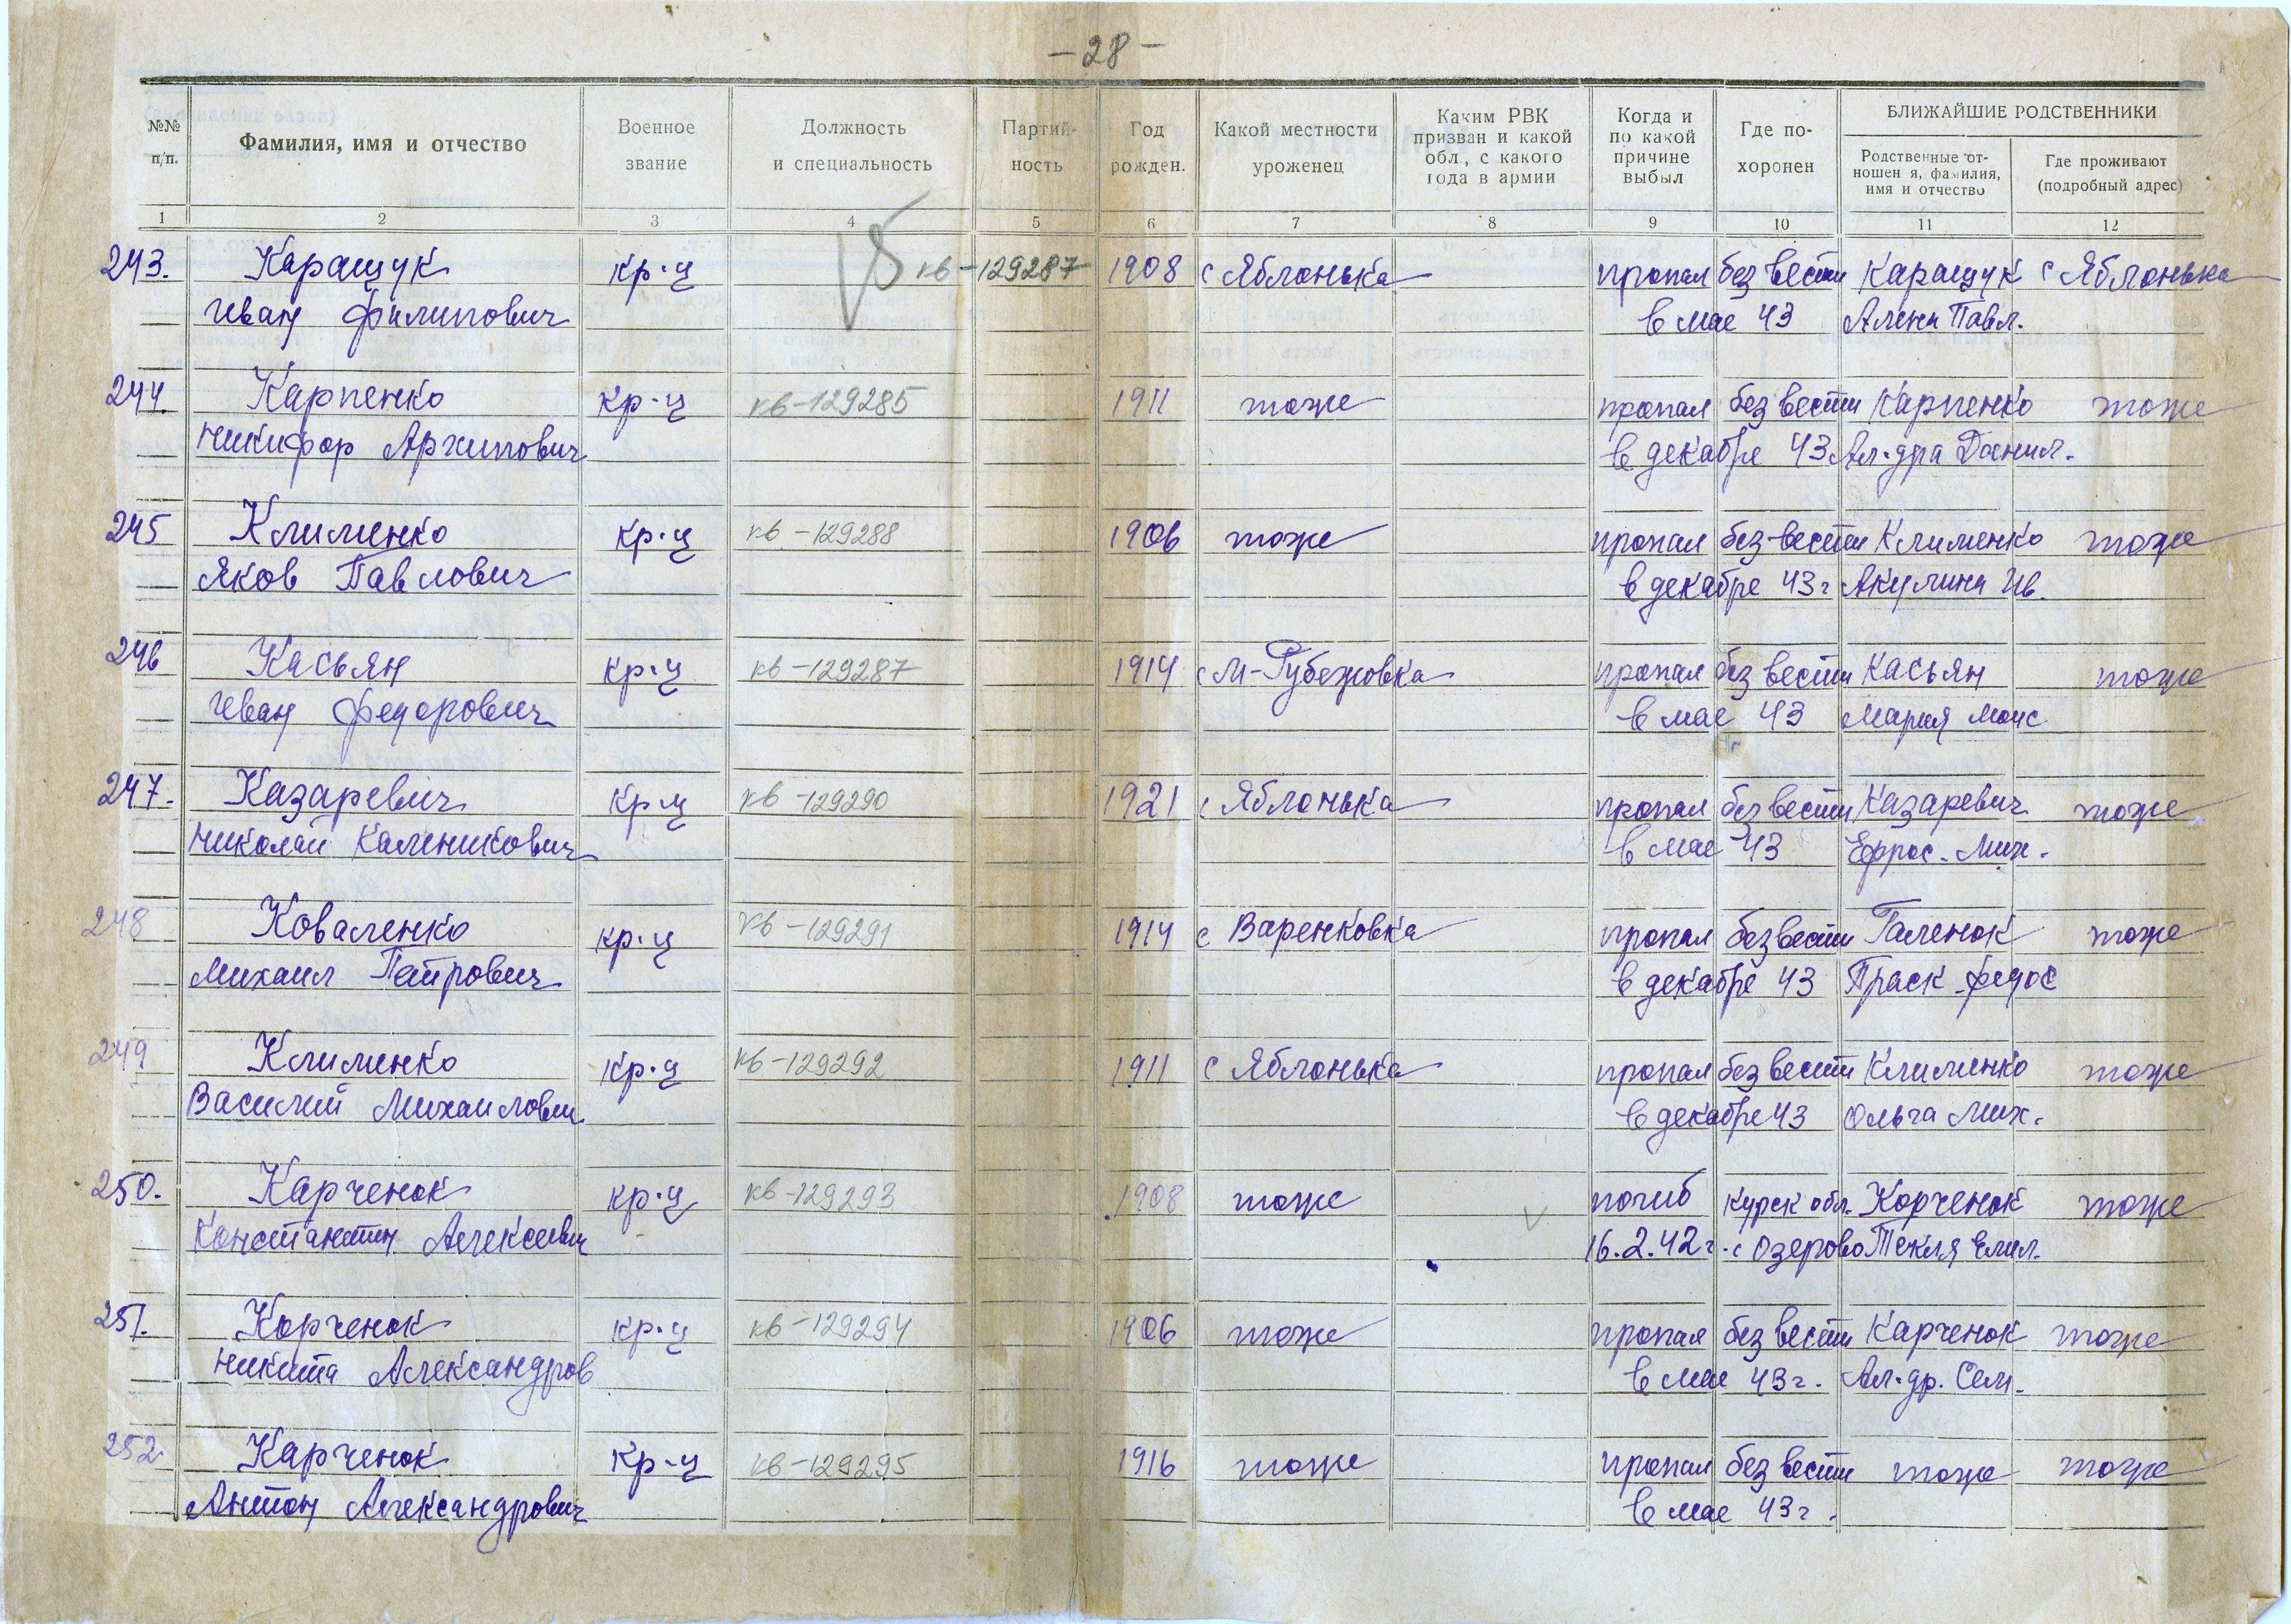 -28-
№№ п/п.
Фамилия, имя и отчество
Военное звание
Должность и специальность
Партий-ность
Год рожден.
Какой местности уроженец
Каким РВК призван и какой обл., с какого года в армии
Когда и по какой причине выбыл
Где по-хоронен
БЛИЖАЙШИЕ РОДСТВЕННИКИ
Родственные от-ношен я, фамилия, имя и отчество
Где проживают (подробный адрес)
1 2 3 4 5 6 7 8 9 10 11 12
243. Каращук кр-ц кв-129287 1908 с Яблонька пропал без вести Каращук с Яблонька
Иван Филипович в мае 43 Алена Павл.
244. Карпенко кр-ц кв-129285 1911 тоже пропал без вести Карпенко тоже
Никифор Архипович в декабре 43 Ал-дра Данил.
245 Клименко кр-ц кв-129288 1906 тоже пропал без вести Клименко тоже
Яков Павлович в декабре 43г Акулина Ив.
246 Касьян кр-ц кв-129287 1914 с М-Рубежовка пропал без вести Касьян тоже
Иван Федорович в мае 43 Мария Моис
247. Казаревич кр-ц кв-129290 1921 с Яблонька пропал без вести Казаревич тоже
Николай Каленикович в мае 43 Ефрос. Мих.
248 Коваленко кр-ц кв-129291 1914 с Варенковка пропал без вести Галенок тоже
Михаил Петрович в декабре 43 Праск. Федос
249 Клименко кр-ц кв-129292 1911 с Яблонька пропал без вести Клименко тоже
Василий Михайлович в декабре 43 Ольга Мих.
250. Карченок кр-ц кв-129293 1908 тоже погиб Курск обл. Корченок тоже
Константин Алексеевич 16.2.42г. с Озерово Текля Емил.
251. Корченок кр-ц кв-129294 1906 тоже пропал без вести Карченок тоже
Никита Александров в мае 43г. Ал-др. Сем.
252. Карченок кр-ц кв-129295 1916 тоже пропал без вести тоже тоже
Антон Александрович в мае 43г.